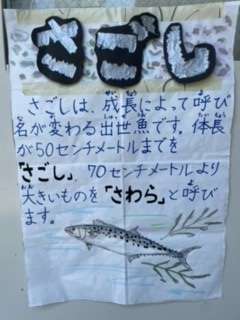 さごし
さごしは、成長によって呼び
名が変わる出世魚です。体長
が50センチメートルまでを
「さごし」、70センチメートルより
大きいものを「さわら」と呼び
ます。